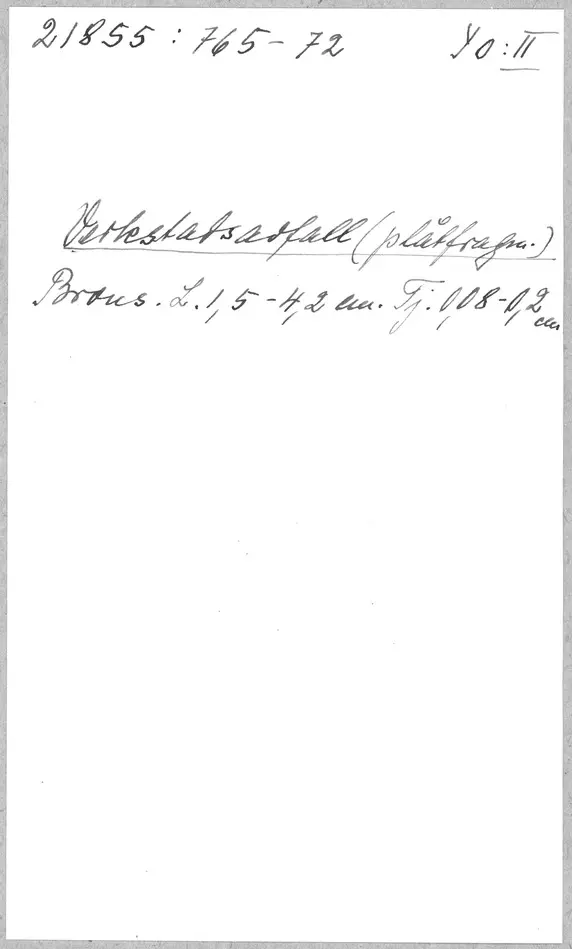 21855 : 765 - 72 Yo : II
Verkstadsavfall (plåtfragm.)
Brons. L. 1,5 - 4,2 cm. Tj. 0,08 - 0,2 cm